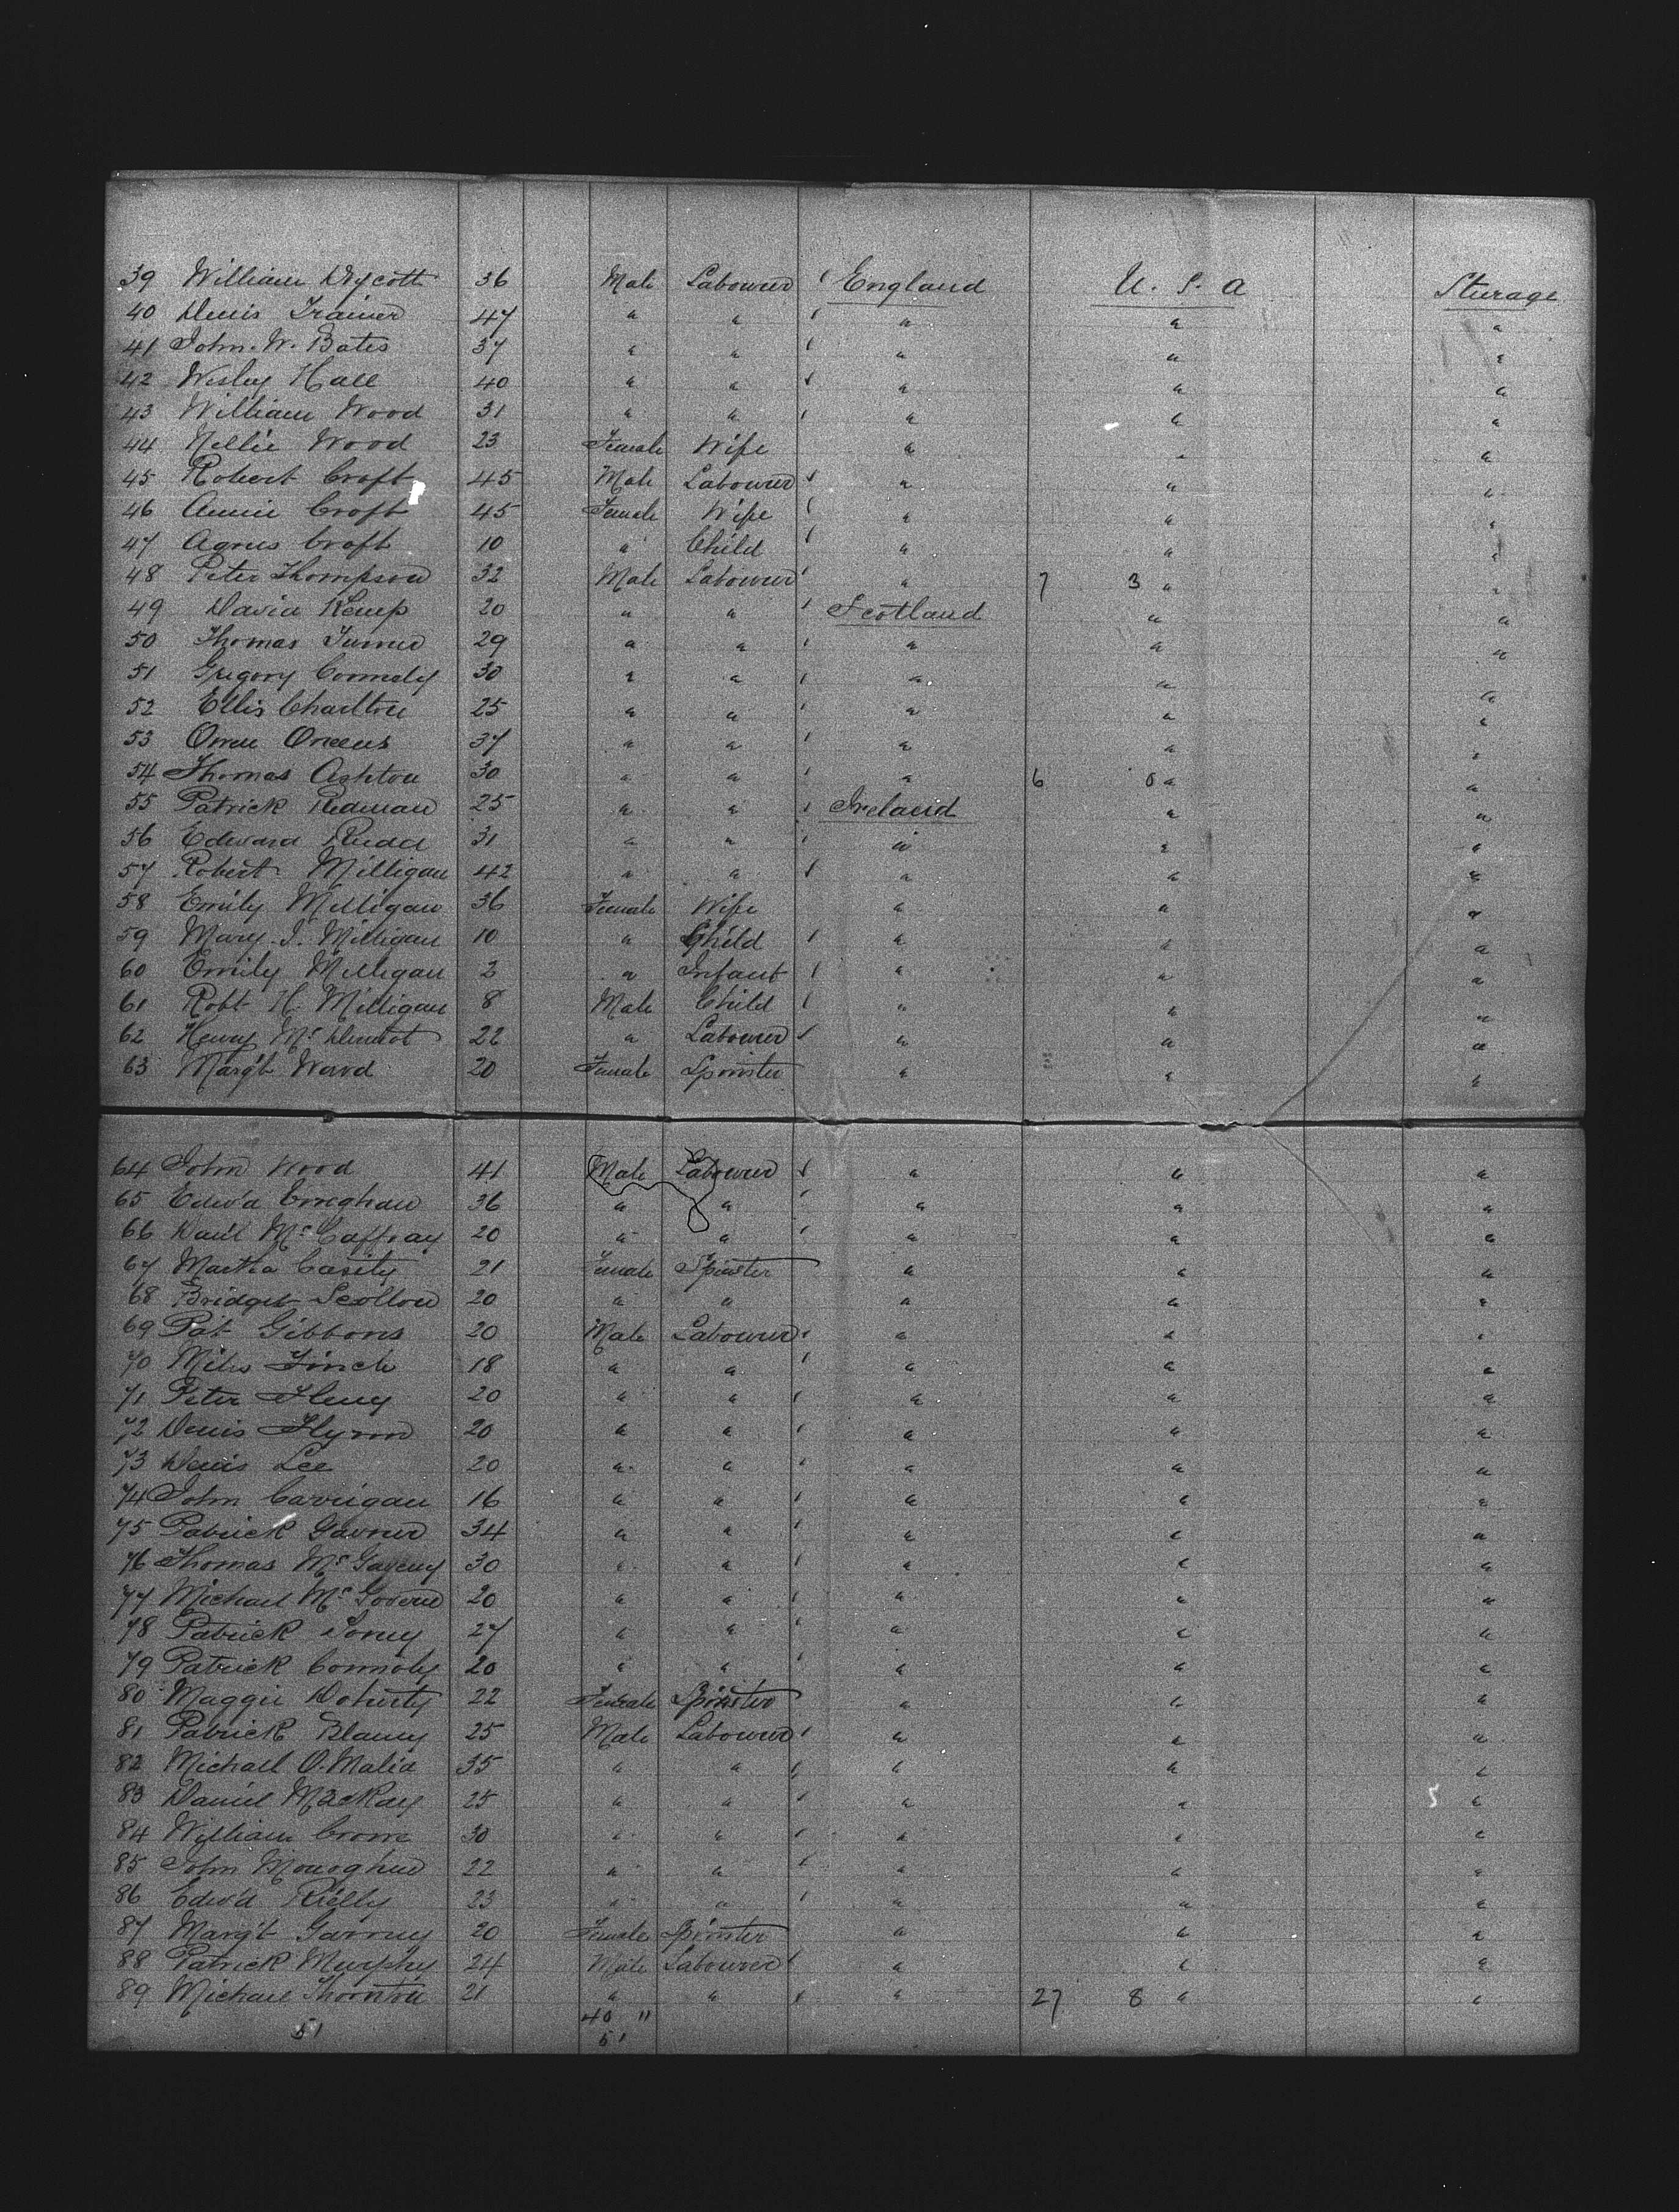 39 William Dycott 36 Male Labourer England U. S. A Sturage
40 Denis Trainer 47 " " " " "
41 John. W. Bates 37 " " " " "
42 Wesley Hall 40 " " " " "
43 William Wood 31 " " " " "
44 Nellie Wood 23 Female Wife " " "
45 Robert Croft 45 Male Labourer " " "
46 Annie Croft 45 Female Wife " " "
47 Agnes Croft 10 " Child " " "
48 Peter Thompson 32 Male Labourer " 7 3 " "
49 David Kemp 20 " " Scotland " "
50 Thomas Turner 29 " " " " "
51 Gregory Connoly 30 " " " " "
52 Ellis Charlton 25 " " " " "
53 Owen Oneens 37 " " " " "
54 Thomas Ashton 30 " " " 6 0 " "
55 Patrick Redman 25 " " Ireland " "
56 Edward Rudd 31 " " " " "
57 Robert Milligan 42 " " " " "
58 Emily Milligan 36 Female Wife " " "
59 Mary. J. Milligan 10 " Child " " "
60 Emily Milligan 2 " Infant " " "
61 Robt H. Milligan 8 Male Child " " "
62 Henry McDermot 22 " Labourer " " "
63 Margt Ward 20 Female Spinster " " "
64 John Wood 41 Male Labourer " " "
65 Edwd 36 " " " " "
66 Danl McCaffray 20 " " " " "
67 Martha Casity 21 Female Spinster " " "
68 Bridget Scollon 20 " " " " "
69 Pat Gibbons 20 Male Labourer " " "
70 Miles Finch 18 " " " " "
71 Peter 20 " " " " "
72 Denis Flynn 20 " " " " "
73 Denis Lee 20 " " " " "
74 John Carrigan 16 " " " " "
75 Patrick 34 " " " " "
76 Thomas 30 " " " " "
77 Michael McGovern 20 " " " " "
78 Patrick 27 " " " " "
79 Patrick Connoly 20 " " " " "
80 Maggie Doherty 22 Female Spinster " " "
81 Patrick Blaney 25 Male Labourer " " "
82 Michael O. Malia 35 " " " " "
83 Daniel MacKay 25 " " " " "
84 William Crome 30 " " " " "
85 John Monoghen 22 " " " " "
86 Edwd Rielly 23 " " " " "
87 Margt 20 Female Spinster " " "
88 Patrick Murphy 24 Male Labourer " " "
89 Michael Thornton 21 " " " 27 8 " "
51 40 "
51